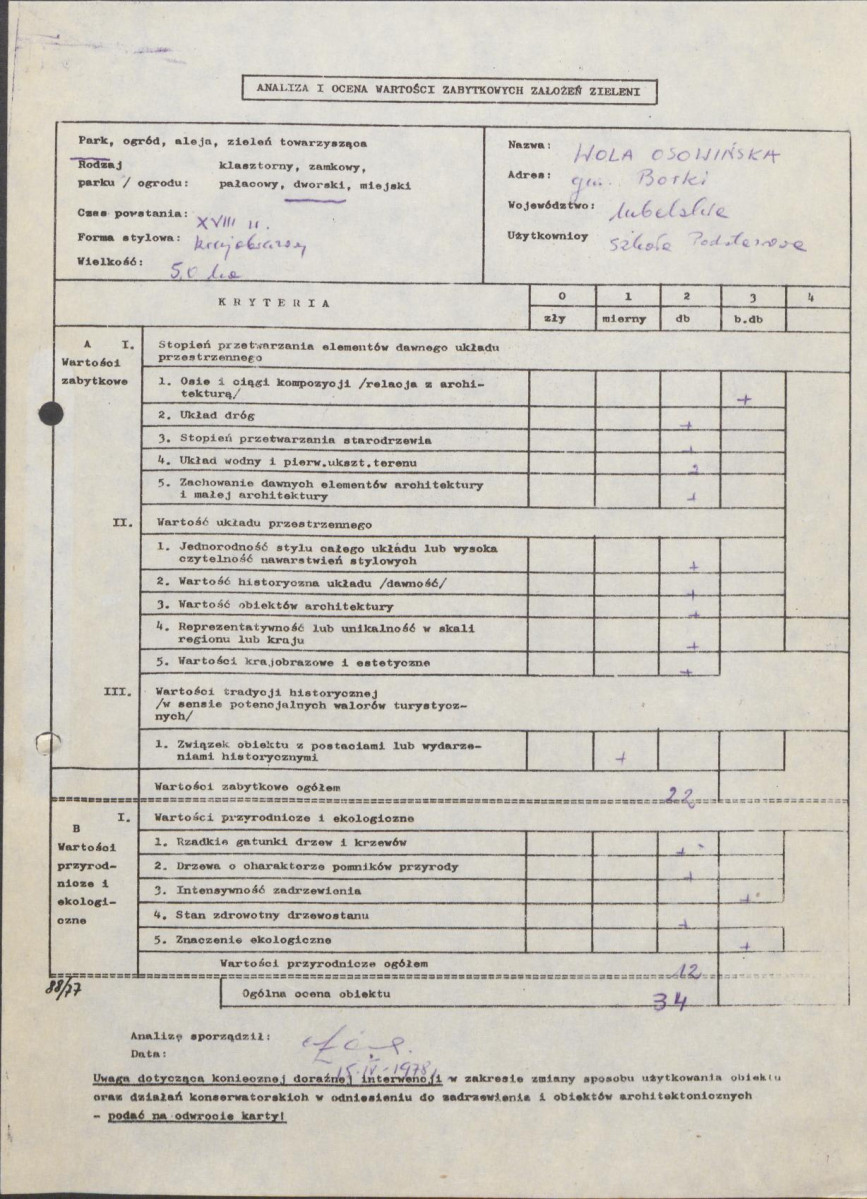 ANALIZA I OCENA WARTOŚCI ZABYTKOWYCH ZAŁOŻEŃ ZIELENI
Park, ogród, aleja, zieleń towarzysząca
Rodzaj klasztorny, zamkowy,
parku / ogrodu: pałacowy, dworski, miejski
Czas powstania: XVIII w.
Forma stylowa: krajobrazowy
Wielkość: 5,0 ha
Nazwa: WOLA OSOWIŃSKA
Adres: gm. Borki
Województwo: lubelskie
Użytkownicy Szkoła Podstawowa
KRYTERIA 0 1 2 3 4
zły mierny db b.db
A I. Stopień przetwarzania elementów dawnego układu
Wartości przestrzennego
zabytkowe 1. Osie i ciągi kompozycji /relacja z archi-
tekturą/ +
2. Układ dróg +
3. Stopień przetwarzania starodrzewia +
4. Układ wodny i pierw.ukszt.terenu 2
5. Zachowanie dawnych elementów architektury
i małej architektury +
II. Wartość układu przestrzennego
1. Jednorodność stylu całego układu lub wysoka
czytelność nawarstwień stylowych +
2. Wartość historyczna układu /dawność/ +
3. Wartość obiektów architektury +
4. Reprezentatywność lub unikalność w skali
regionu lub kraju +
5. Wartości krajobrazowe i estetyczne +
III. Wartości tradycji historycznej
/w sensie potencjalnych walorów turystycz-
nych/
1. Związek obiektu z postaciami lub wydarze-
niami historycznymi +
Wartości zabytkowe ogółem 22
I. Wartości przyrodnicze i ekologiczne
B
Wartości 1. Rzadkie gatunki drzew i krzewów +
przyrod- 2. Drzewa o charakterze pomników przyrody +
nicze i 3. Intensywność zadrzewienia +
ekologi- 4. Stan zdrowotny drzewostanu +
czne 5. Znaczenie ekologiczne +
Wartości przyrodnicze ogółem 12
88/77 Ogólna ocena obiektu 34
Analizę sporządził:
Data: 15.IV.1978
Uwaga dotycząca koniecznej doraźnej interwencji w zakresie zmiany sposobu użytkowania obiektu
oraz działań konserwatorskich w odniesieniu do zadrzewienia i obiektów architektonicznych
- podać na odwrocie karty!